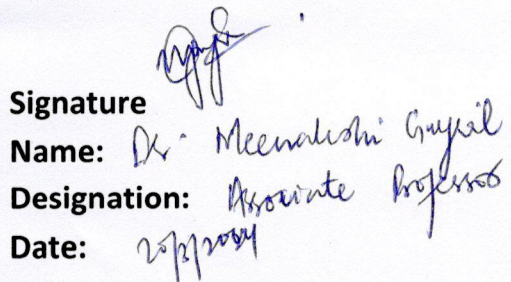 Signature
Name: Dr. Meenakshi Gujral
Designation: Associate Professor
Date: 20/3/2024